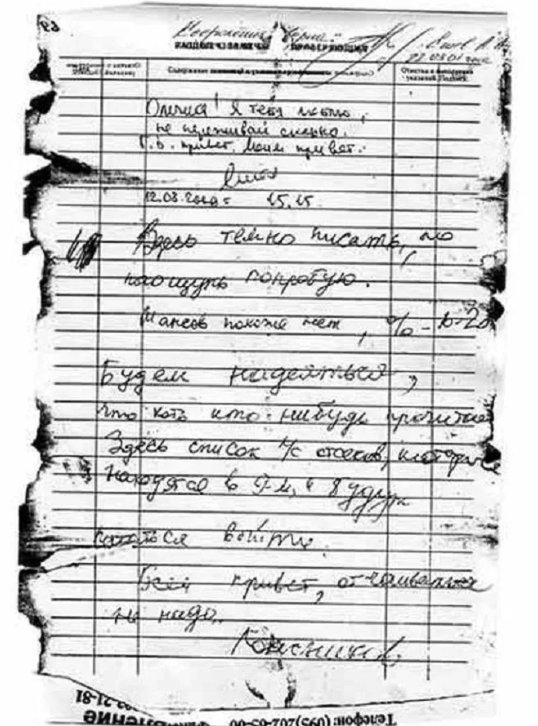 Олечка! Я тебя люблю,
не переживай сильно.
Г.В. привет. Моим привет.
12.08.2000г 15.15
Здесь темно писать, но
наощупь попробую.
Шансов похоже нет, % - 10-20
Будем надеяться,
что хоть кто-нибудь прочитает
Здесь список л/с отсеков, которые
находятся в 9-м и будут
пытаться выйти.
Всем привет, отчаиваться
не надо.
Колесников
Телефон: (095)
21-81